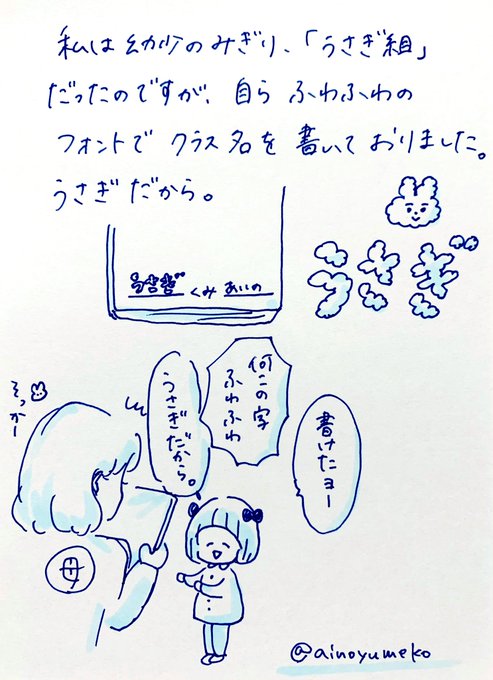 私は幼少のみぎり、「うさぎ組」
だったのですが、自らふわふわの
フォントでクラス名を書いておりました。
うさぎだから。
うさぎ くみ あいの
うさぎ
書けたヨー
何この字
ふわふわ
うさぎだから。
そっかー
母
@ainoyumeko